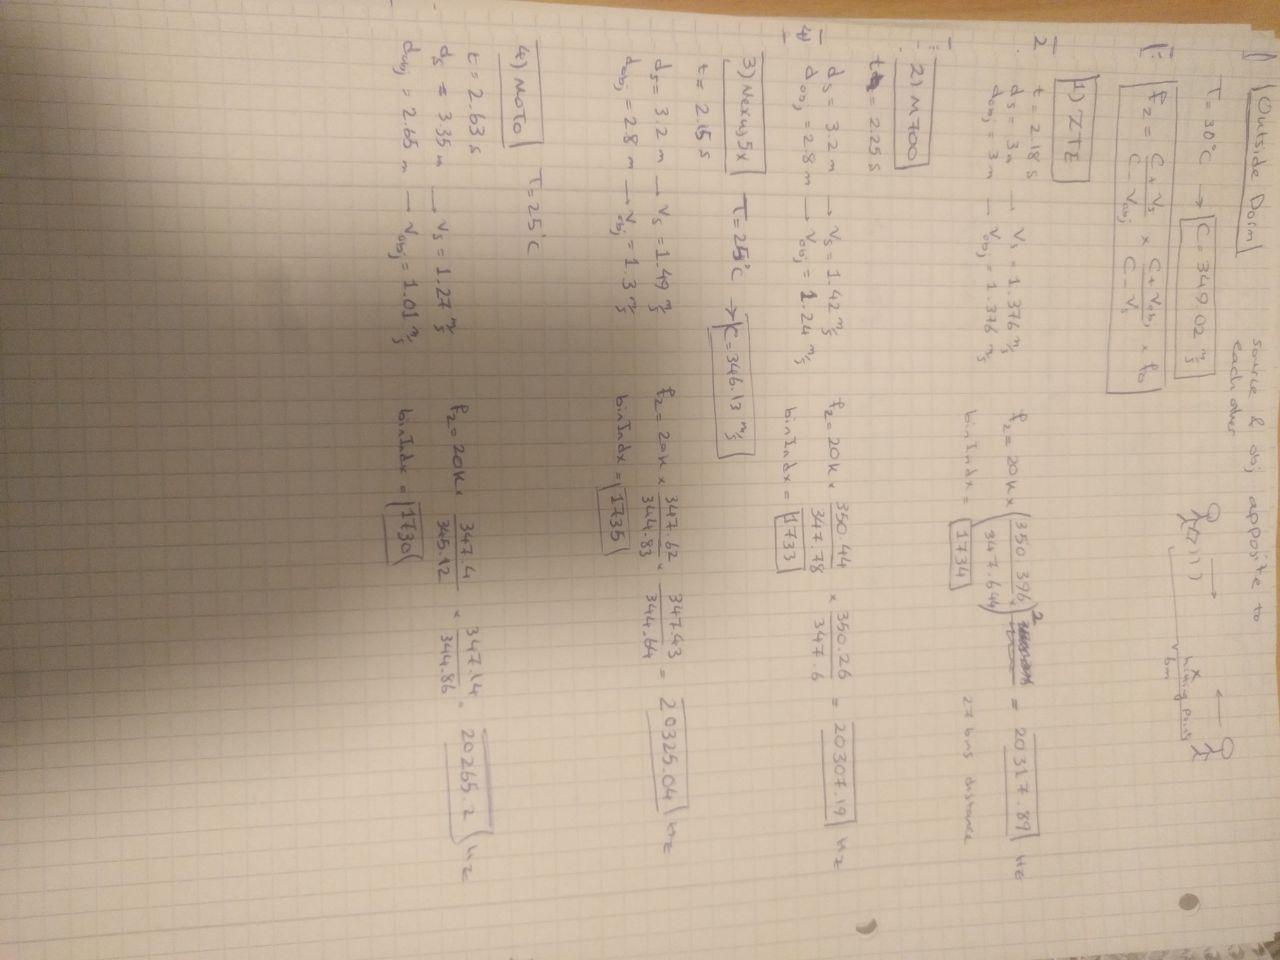 Outside Dorm
source & obj apposite to
each other
T = 30°C → C = 349.02 m/s
hitting point
6m
f2 = (C + Vs)/(C - Vobj) × (C + Vobj)/(C - Vs) × f0
1) ZTE
t = 2.18 s
ds = 3m → Vs = 1.376 m/s
dobj = 3m → Vobj = 1.376 m/s
f2 = 20K × (350.396/347.644)² = 20317.89 Hz
binIndx = 1734
27 bins distance
2) M700
t = 2.25 s
ds = 3.2 m → Vs = 1.42 m/s
dobj = 2.8 m → Vobj = 1.24 m/s
f2 = 20K × 350.44/347.78 × 350.26/347.6 = 20307.19 Hz
binIndx = 1733
3) Nexus 5x T = 25°C → C = 346.13 m/s
t = 2.15 s
ds = 3.2 m → Vs = 1.49 m/s
dobj = 2.8 m → Vobj = 1.3 m/s
f2 = 20K × 347.62/344.83 × 347.43/344.64 = 20325.04 Hz
binIndx = 1735
4) MOTO T = 25°C
t = 2.63 s
ds = 3.35 m → Vs = 1.27 m/s
dobj = 2.65 m → Vobj = 1.01 m/s
f2 = 20K × 347.4/345.12 × 347.14/344.86 = 20265.2 Hz
binIndx = 1730